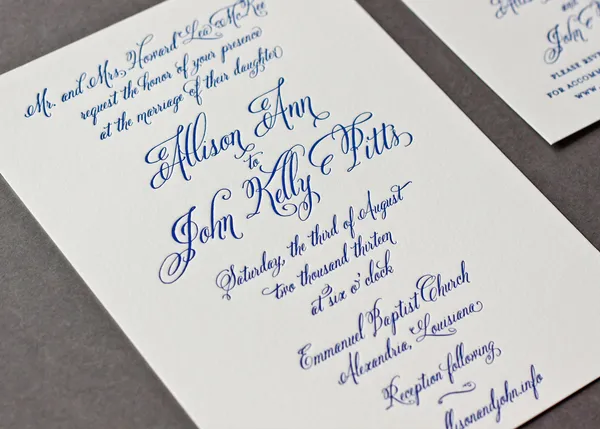 Mr. and Mrs. Howard Lea McKee
request the honor of your presence
at the marriage of their daughter
Allison Ann
to
John Kelly Pitts
Saturday, the third of August
two thousand thirteen
at six o'clock
Emmanuel Baptist Church
Alexandria, Louisiana
Reception following
llisonandjohn.info
and
John
PLEASE
FOR ACCOMM
WWW.